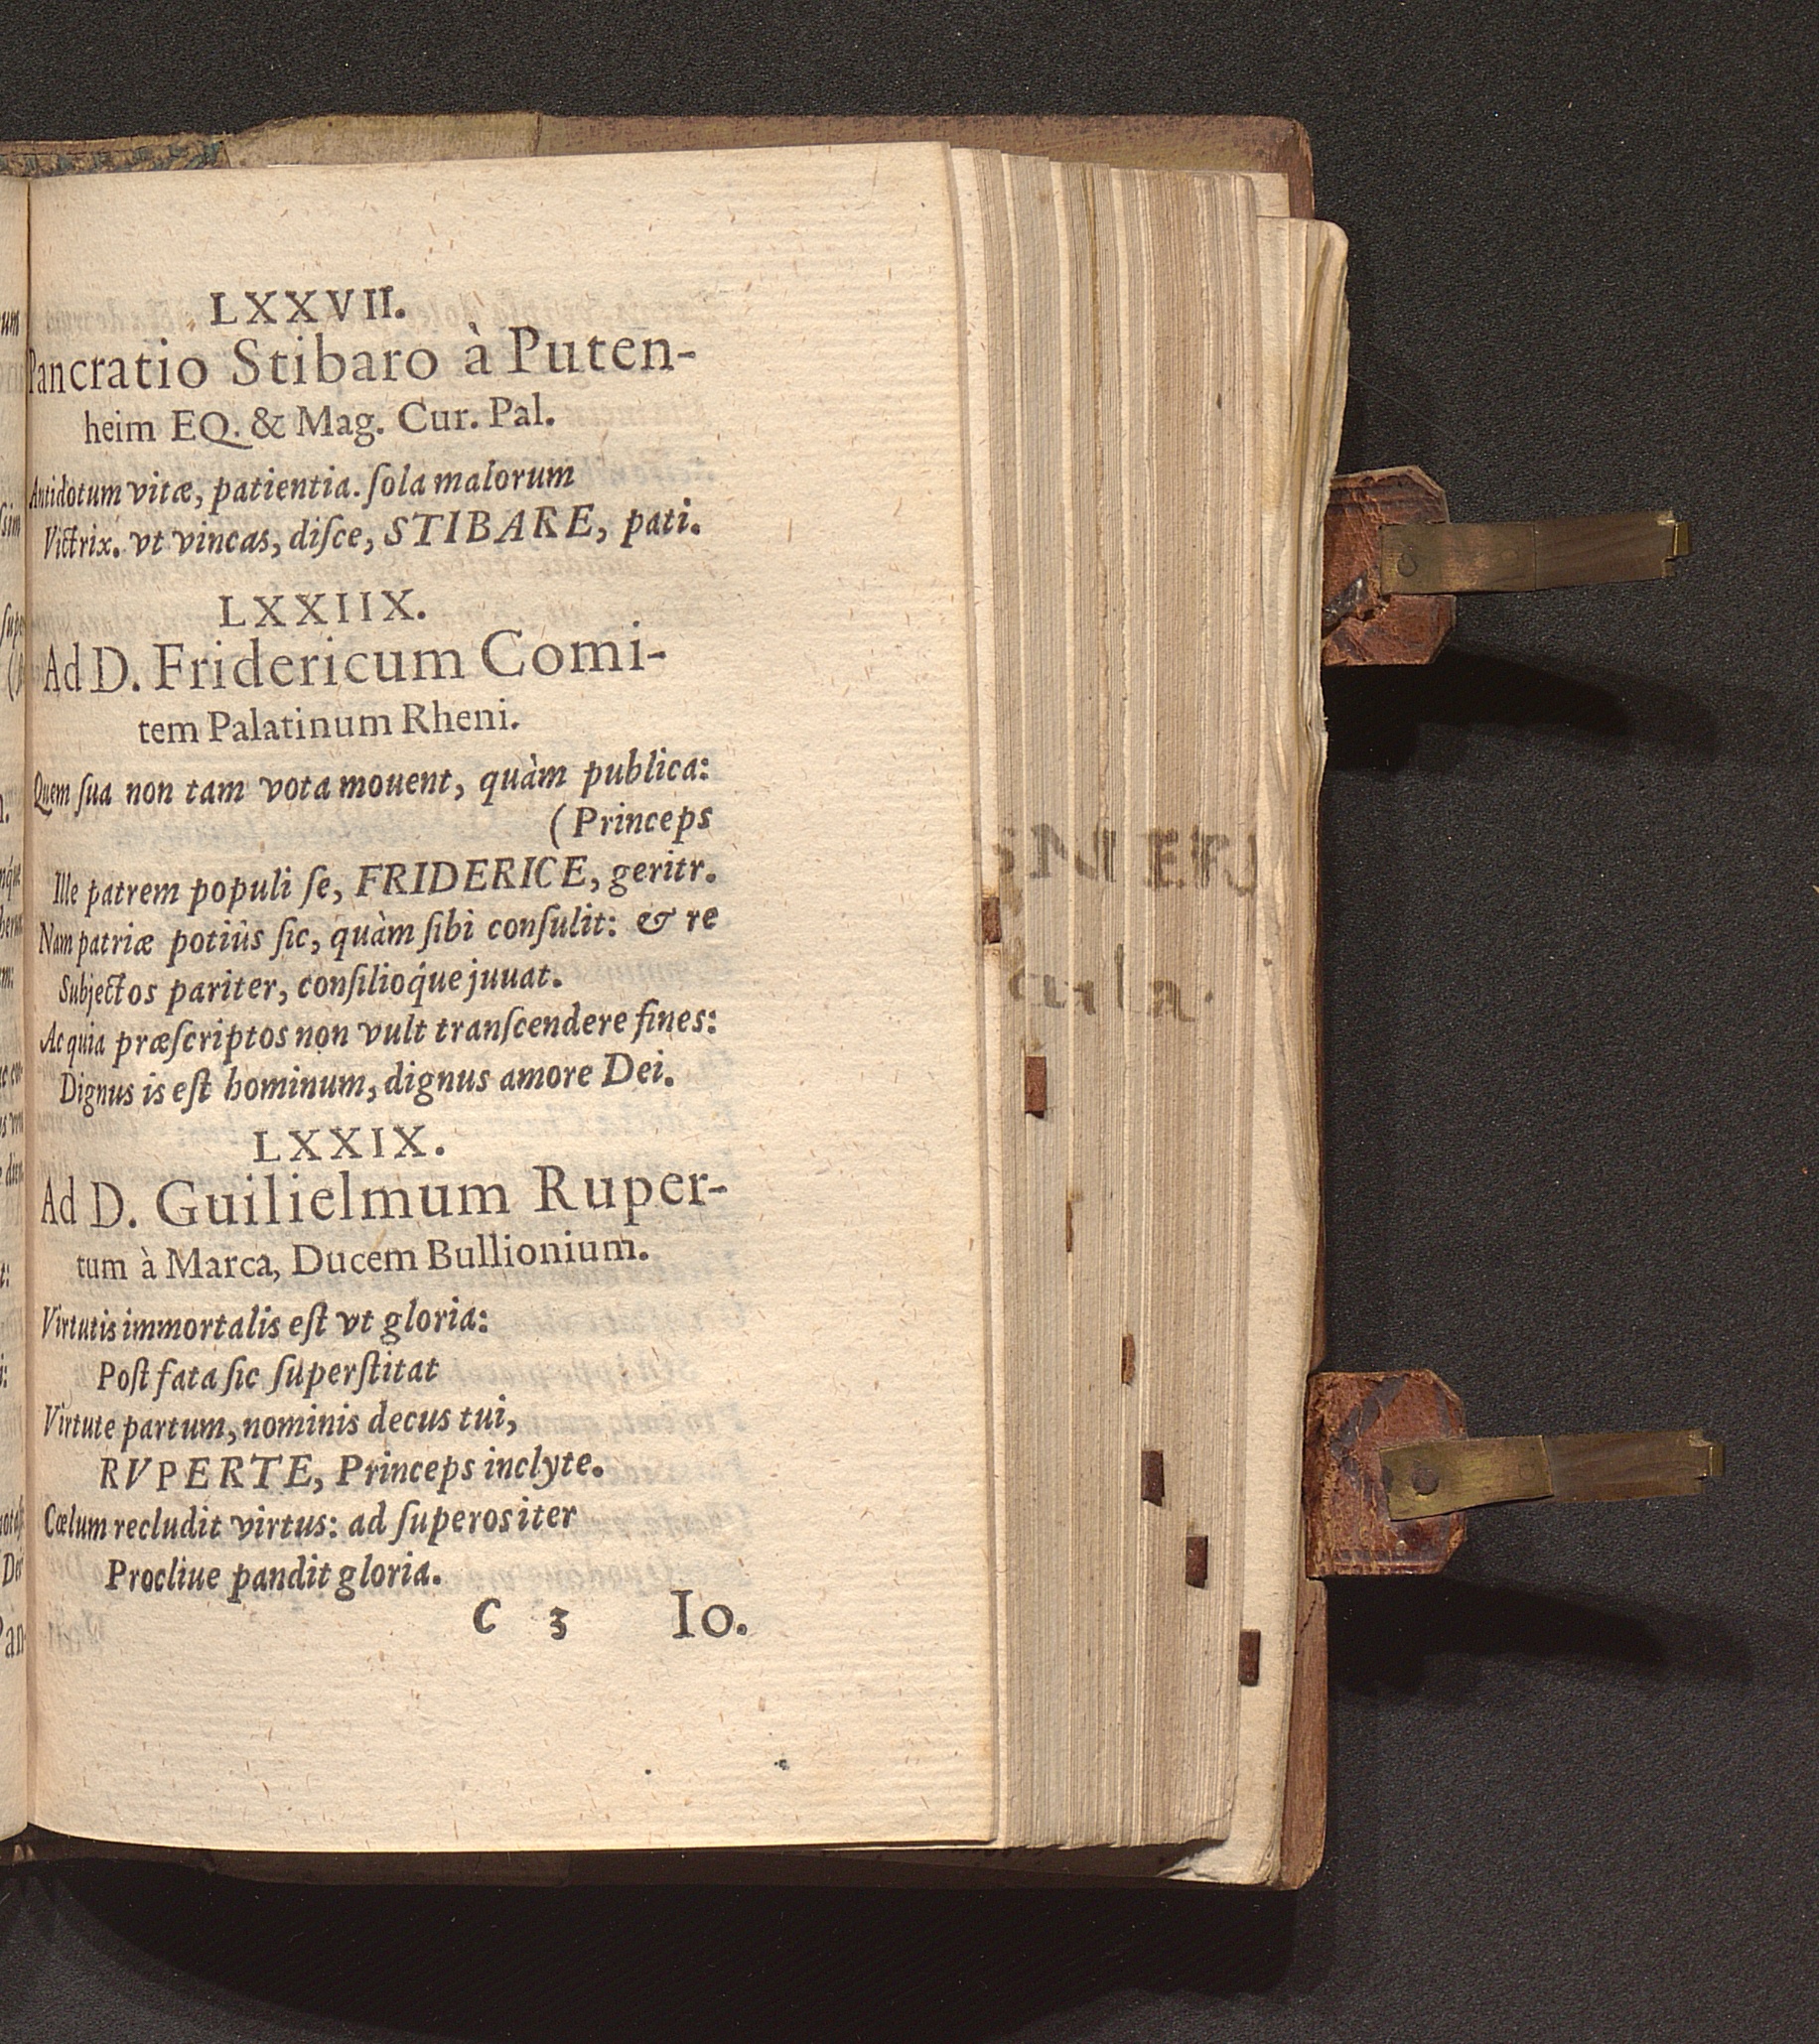 LXXVII.
Pancratio Stibaro à Puten-
heim EQ. & Mag. Cur. Pal.
Antidotum vitæ, patientia. ſola malorum
Victrix. vt vincas, diſce, STIBARE, pati.
LXXIIX.
Ad D. Fridericum Comi-
tem Palatinum Rheni.
Quem ſua non tam vota mouent, quàm publica:
(Princeps
Ille patrem populi ſe, FRIDERICE, geritr.
Nam patriæ potiùs ſic, quàm ſibi conſulit: & re
Subjectos pariter, conſilioq́ue juuat.
Ac quia præſcriptos non vult tranſcendere fines:
Dignus is eſt hominum, dignus amore Dei.
LXXIX.
Ad D. Guilielmum Ruper-
tum à Marca, Ducem Bullionium.
Virtutis immortalis eſt vt gloria:
Poſt fata ſic ſuperſtitat
Virtute partum, nominis decus tui,
RVPERTE, Princeps inclyte.
Cœlum recludit virtus: ad ſuperos iter
Procliue pandit gloria.
C 3 Io.